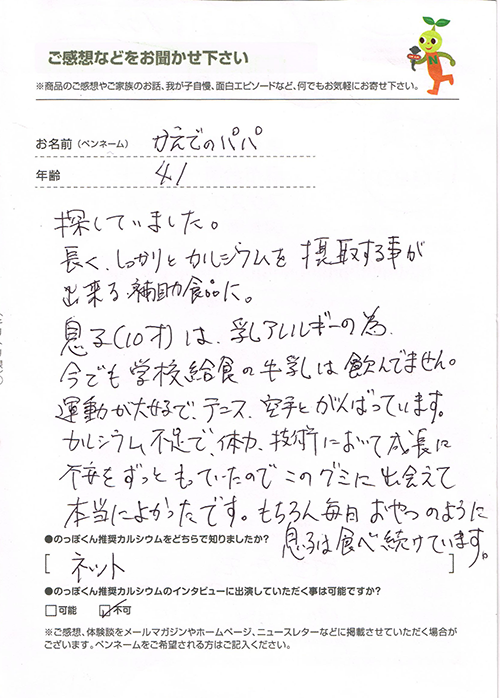 ご感想などをお聞かせ下さい
※商品のご感想やご家族のお話、我が子自慢、面白エピソードなど、何でもお気軽にお寄せ下さい。
N
お名前（ペンネーム） かえでのパパ
年齢 41
探していました。
長く、しっかりとカルシウムを摂取する事が
出来る補助食品に。
息子(10才)は、乳アレルギーの為、
今でも学校給食の牛乳は飲んでません。
運動が大好で、テニス、空手とがんばっています。
カルシウム不足で、体力、技術において成長に
不安をずっともっていたのでこのグミに出会えて
本当によかったです。もちろん毎日おやつのように
息子は食べ続けています。
●のっぽくん推奨カルシウムをどちらで知りましたか?
[ ネット ]
●のっぽくん推奨カルシウムのインタビューに出演していただく事は可能ですか?
□可能 ☑不可
※ご感想、体験談をメールマガジンやホームページ、ニュースレターなどに掲載させていただく場合が
ございます。ペンネームをご希望される方はご記入ください。